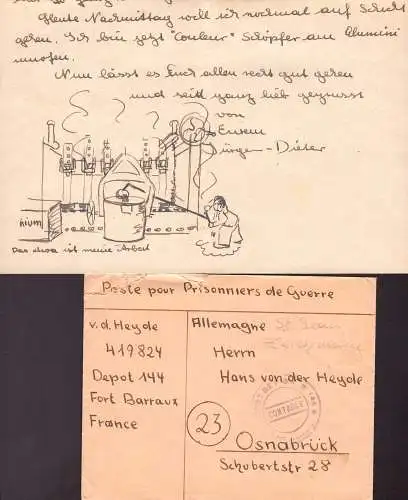 Heute Nachmittag will ich nochmal auf Schicht
gehen. Ich bin jetzt "Couleur" Schöpfer am Alumini
umofen.
Nun lässt es Euch allen recht gut gehen
und seid ganz lieb gegrüsst
von
Eurem
Jürgen-Dieter
nium
Das etwa ist meine Arbeit
Poste pour Prisonniers de Guerre
v. d. Heyde
419824
Depot 144
Fort Barraux
France
Allemagne St Jean
Herrn
Hans von der Heyde
23
Osnabrück
Schubertstr 28